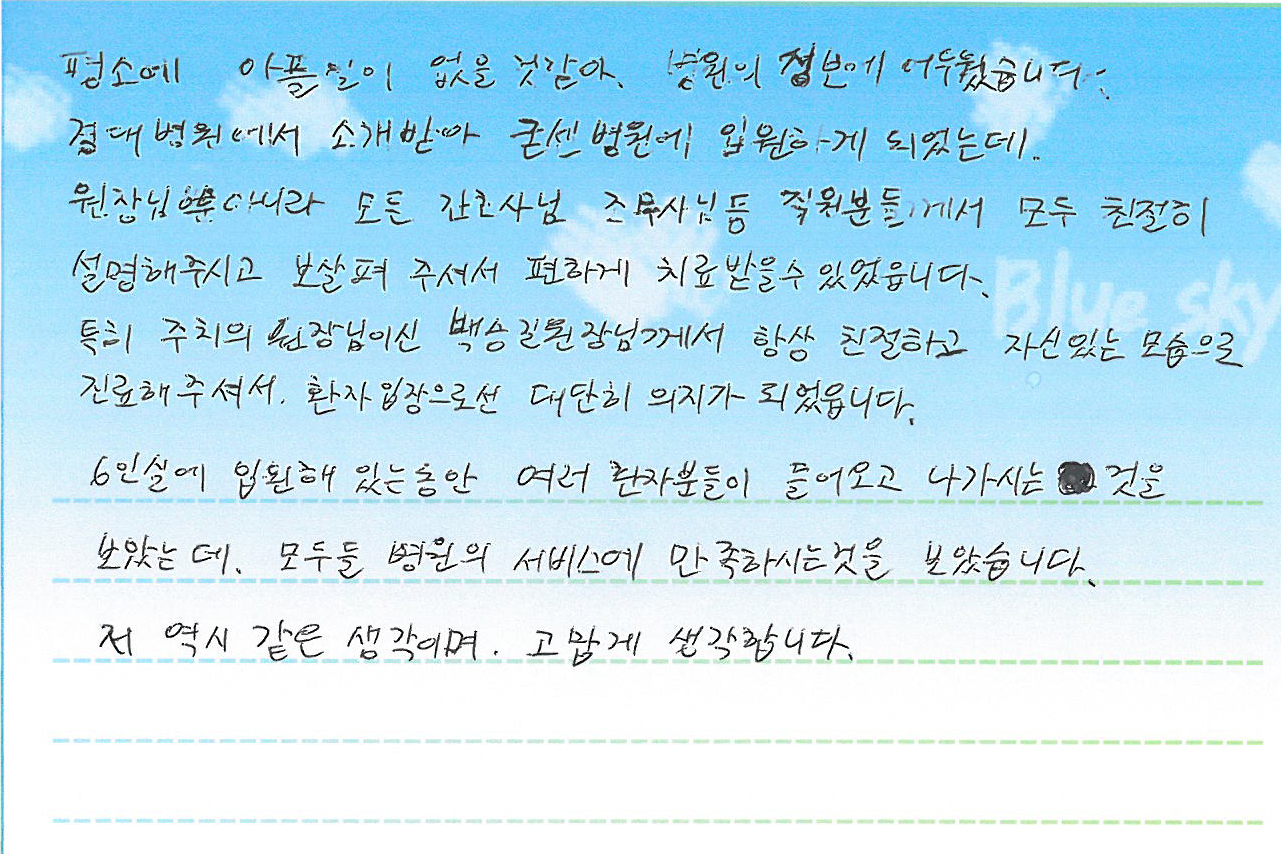 평소에 아플일이 없을 것같아. 병원의 정보에 어두웠습니다.
경대병원에서 소개받아 굳센병원에 입원하게 되었는데.
원장님뿐아니라 모든 간호사님 조무사님등 직원분들께서 모두 친절히
설명해주시고 보살펴 주셔서 편하게 치료받을수 있었읍니다.
Blue sky
특히 주치의 원장님이신 백승길원장님께서 항상 친절하고 자신있는 모습으로
진료해주셔서. 환자입장으로선 대단히 의지가 되었읍니다.
6인실에 입원해 있는동안 여러 환자분들이 들어오고 나가시는 것을
보았는데. 모두들 병원의 서비스에 만족하시는것을 보았습니다.
저 역시 같은 생각이며. 고맙게 생각합니다.